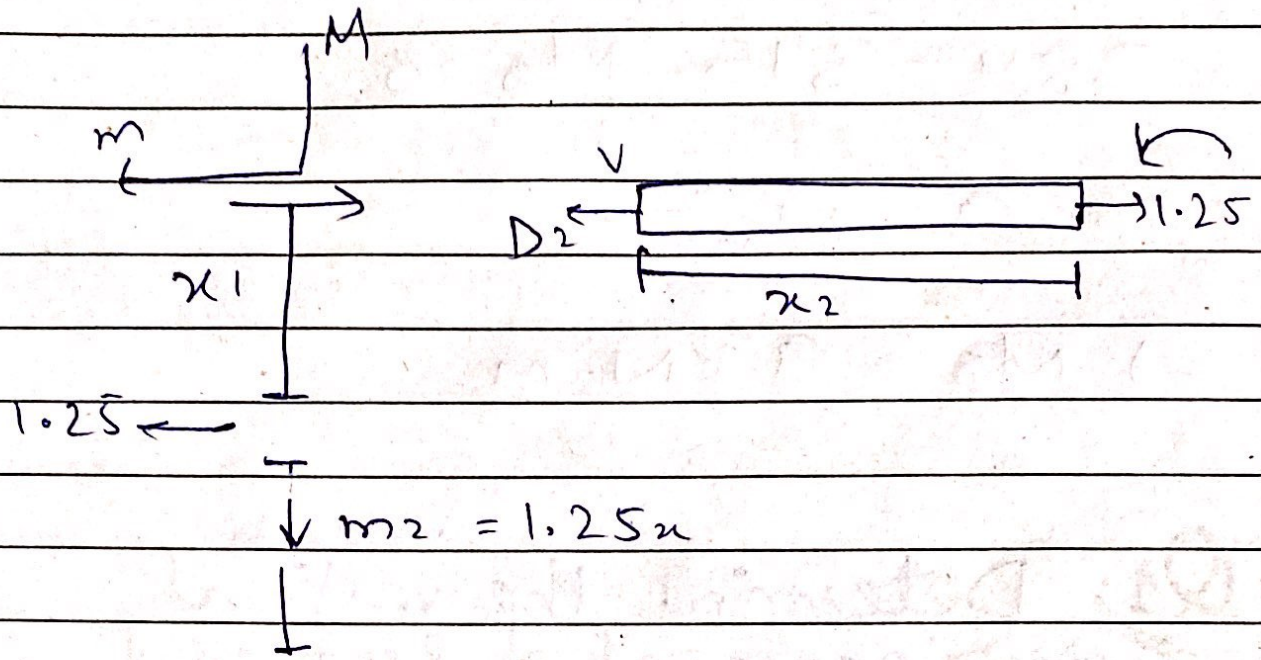 M
m
V
D2
1.25
x1
x2
1.25
m2 = 1.25x